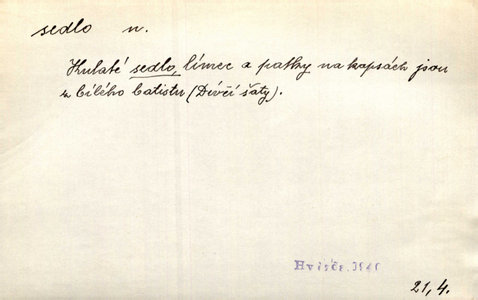 sedlo n.
Kulaté sedlo, límec a patky na kapsách jsou
z bílého batistu (Dívčí šaty).
21,4.